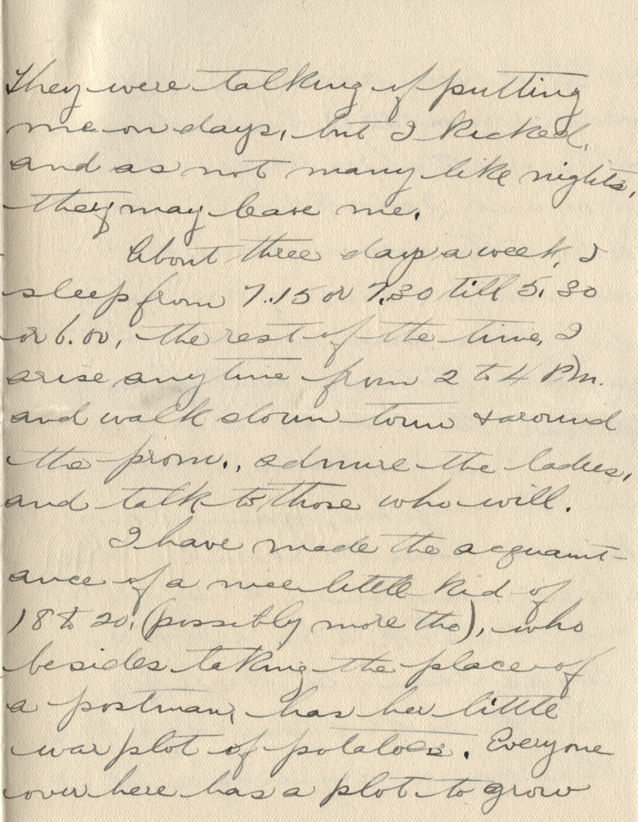 They were talking of putting
me on days, but I kicked,
and as not many like nights,
they may leave me.
About three days a week, I
sleep from 7.15 or 7.30 till 5.30
or 6.00, the rest of the time, I
arise anytime from 2 to 4 P.M.
and walk down town & around
the prom., admire the ladies,
and talk to those who will.
I have made the acquaint-
ance of a nice little kid of
18 to 20, (possibly more tho), who
besides taking the place of
a postman, has her little
war plot of potatoes. Everyone
over here has a plot to grow